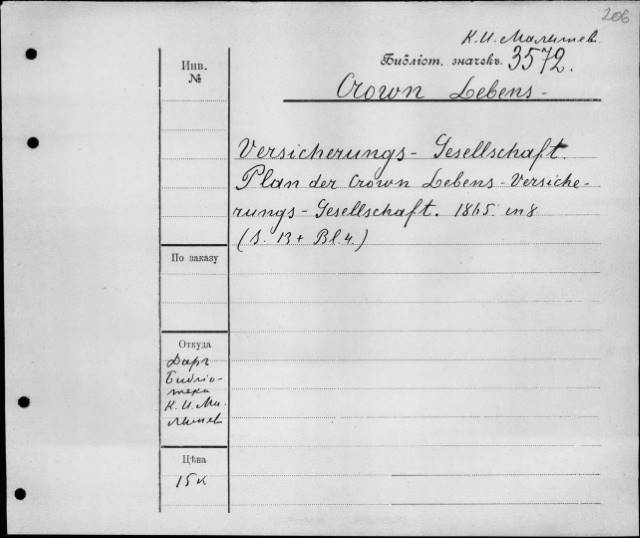 206
К.И. Малышев.
Библіот. значекъ 3572.
Инв.
№
Crown Lebens-
Versicherungs-Gesellschaft.
Plan der Crown Lebens-Versiche-
rungs-Gesellschaft. 1865. in 8
(S. 13 + Bl. 4.)
По заказу
Откуда
Даръ
Библіо-
тека
К.И. Ма-
лышев
Цѣна
15 к